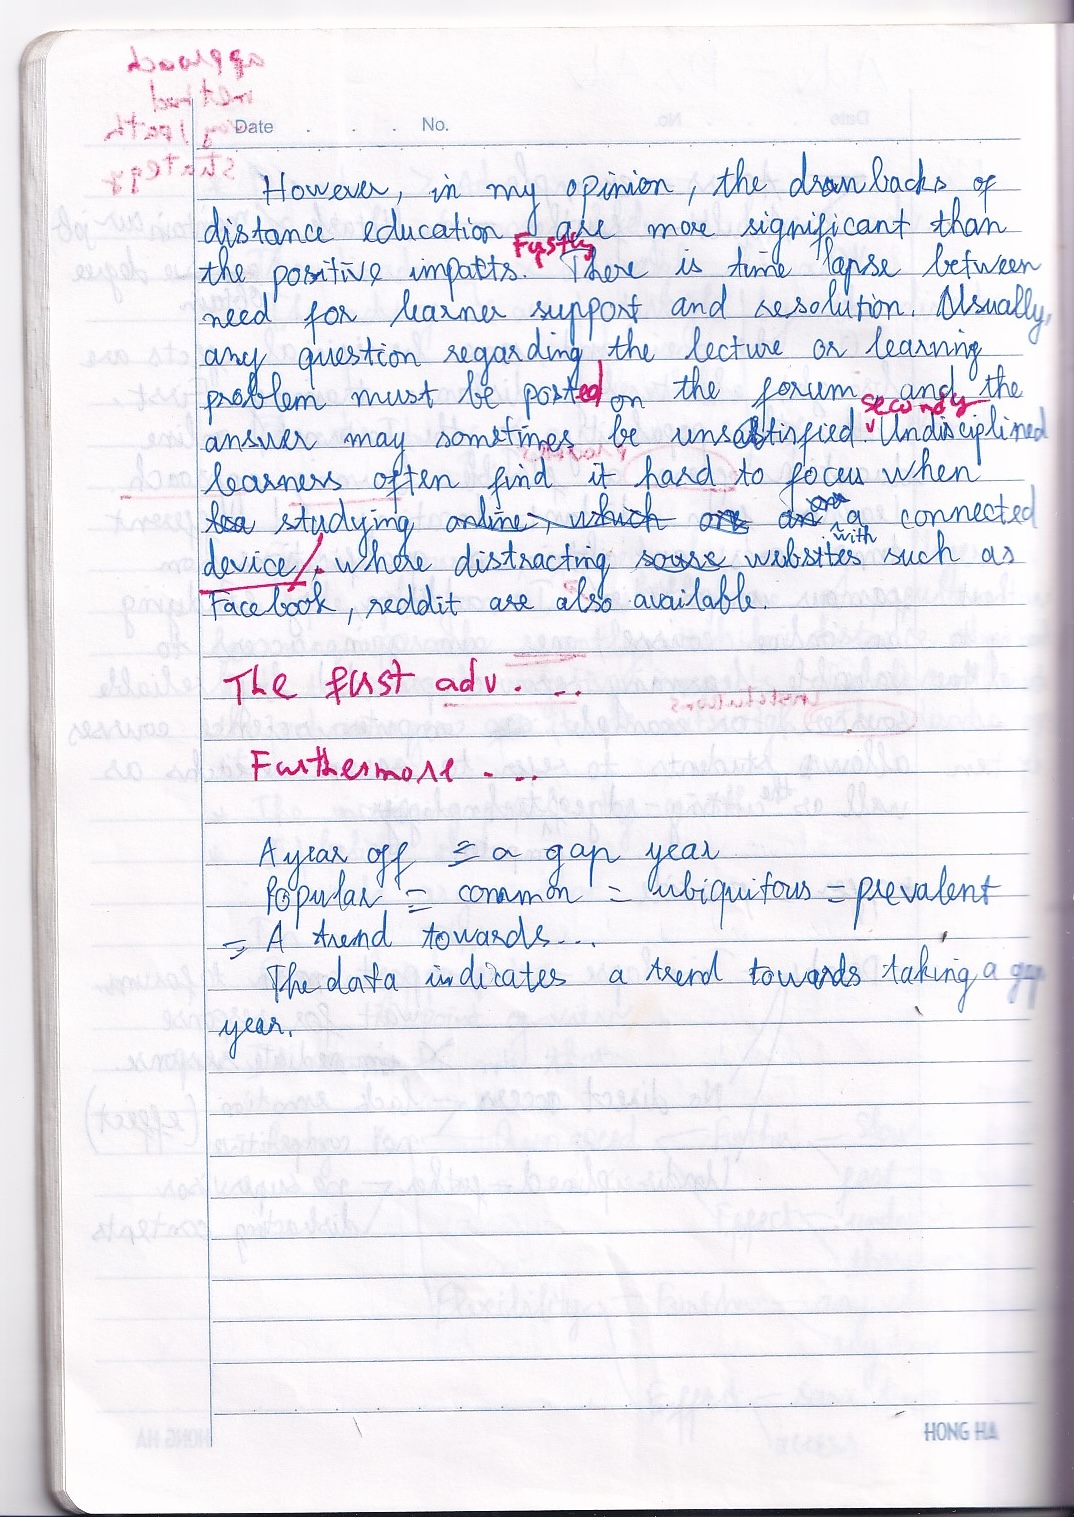 Date . . . No.
However, in my opinion, the drawbacks of
distance education are more significant than
Firstly
the positive impacts. There is time lapse between
need for learner support and resolution. Usually,
any question regarding the lecture or learning
problem must be posted on the forum and the
secondly
answer may sometimes be unsatisfied. Undisciplined
learners often find it hard to focus when
studying online, which on a connected
with
device, where distracting websites such as
Facebook, reddit are also available.
The first adv. ...
Furthermore ...
A year off = a gap year
Popular = common = ubiquitous = prevalent
= A trend towards...
The data indicates a trend towards taking a gap
year.
HONG HA